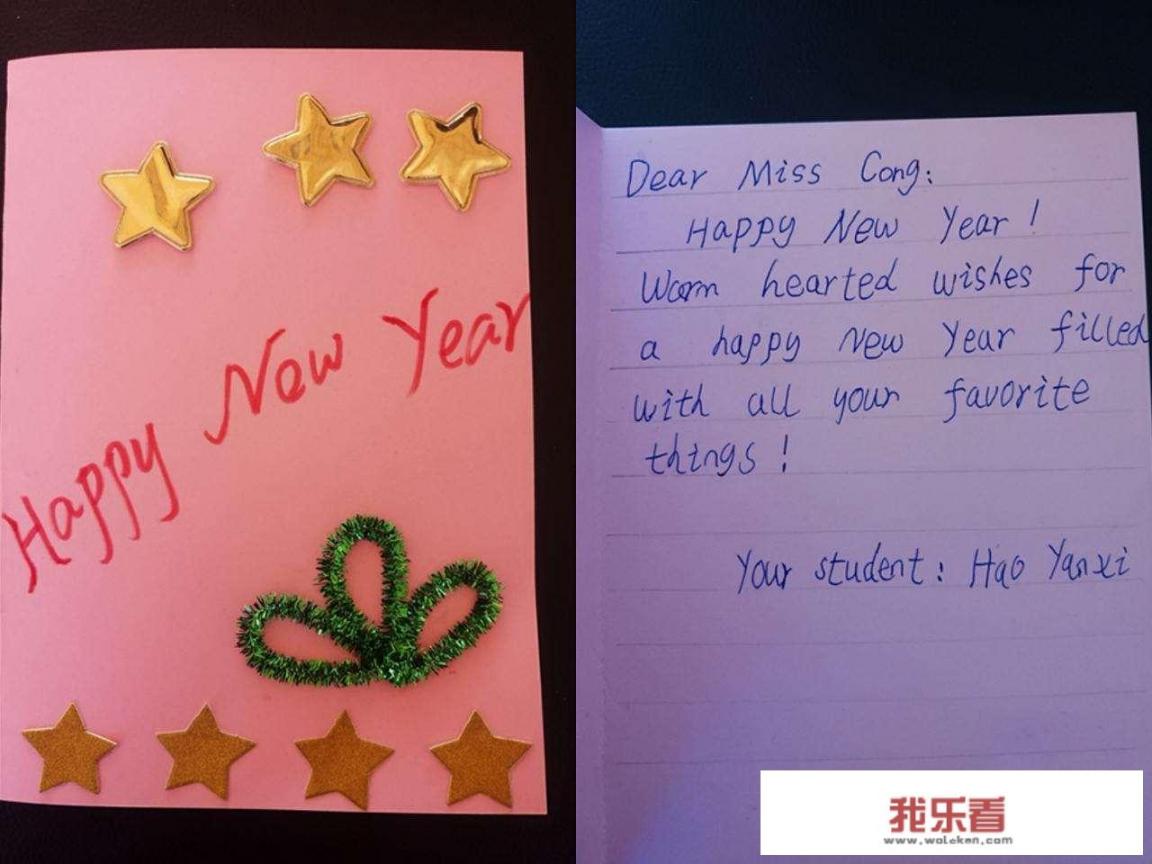 Happy New Year
Dear Miss Cong:
Happy New Year!
Warm hearted wishes for
a happy New Year filled
with all your favorite
things!
Your student: Hao Yanxi
我乐看
www.woleken.com